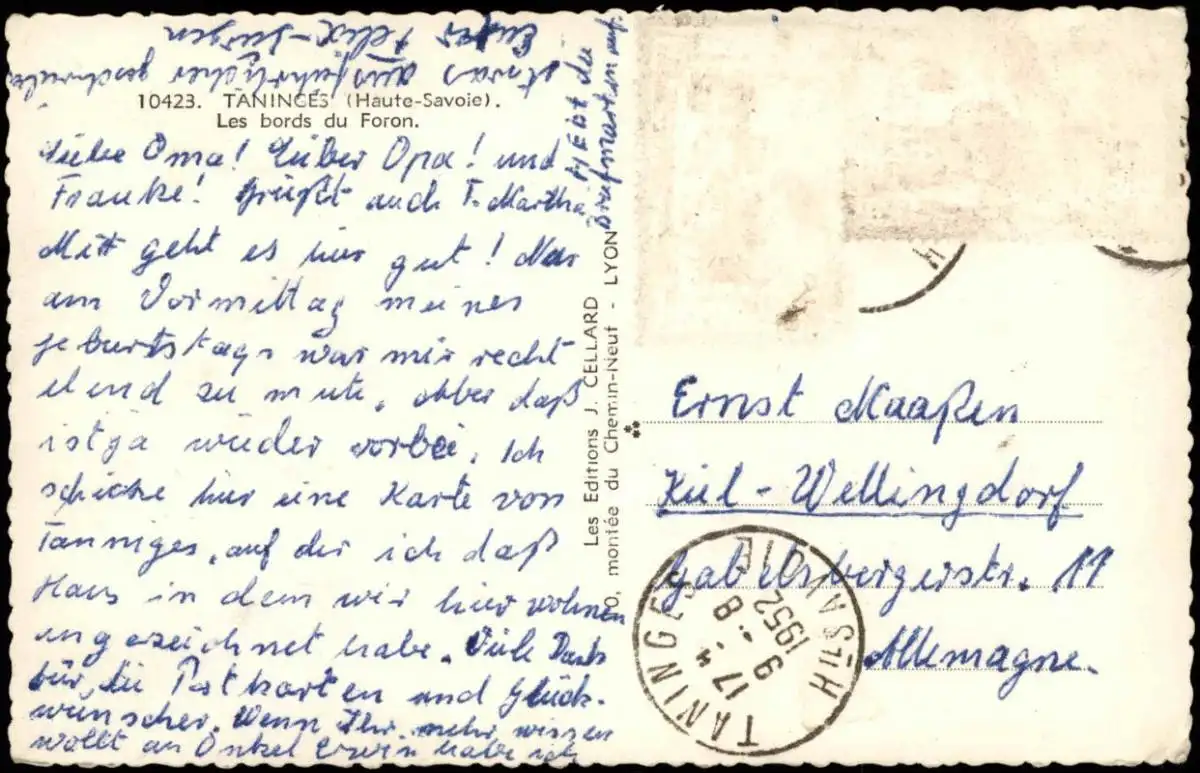 10423. TANINGES (Haute-Savoie).
Les bords du Foron.
Liebe Oma! Lieber Opa! und
Frauke! Grüßt auch T. Martha.
Mir geht es hier gut! Nur
am Vormittag meines
geburtstags war mir recht
elend zu mute, aber daß
ist ja wieder vorbei. Ich
schicke hier eine Karte von
Tanniges, auf der ich daß
Haus in dem wir hier wohnen
angezeichnet habe. Viele Dank
für die Postkarten und Glück-
wünscher. Wenn Ihr mehr wissen
wollt an Onkel Erwin habe ich
etwas ausführlicher geschrieben
Euer Felix-Jürgen
Hebt die
Briefmarken auf
Les Editions J. CELLARD
montée du Chemin-Neuf - LYON
Ernst Maaßen
Kiel - Wellingdorf
Gabelsbergerstr. 11
Allemagne.
TANINGES
HTE SAVOIE
17 H
9 - 8
1952